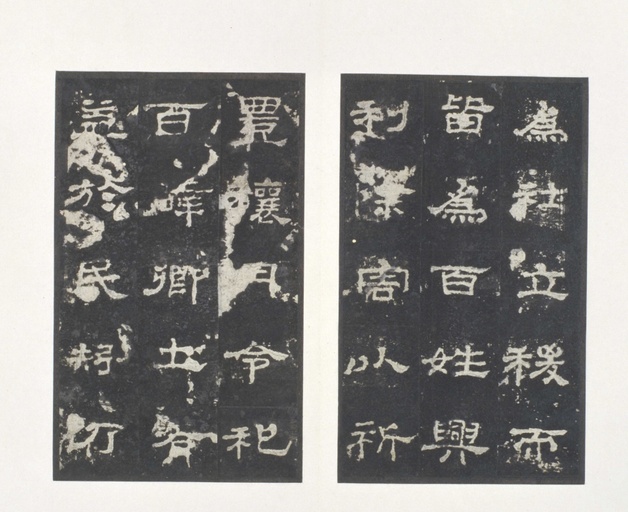 為社立稷而
皆為百姓興
利除害以祈
豐穰月令祀
百辟卿士有
益於民矧乃